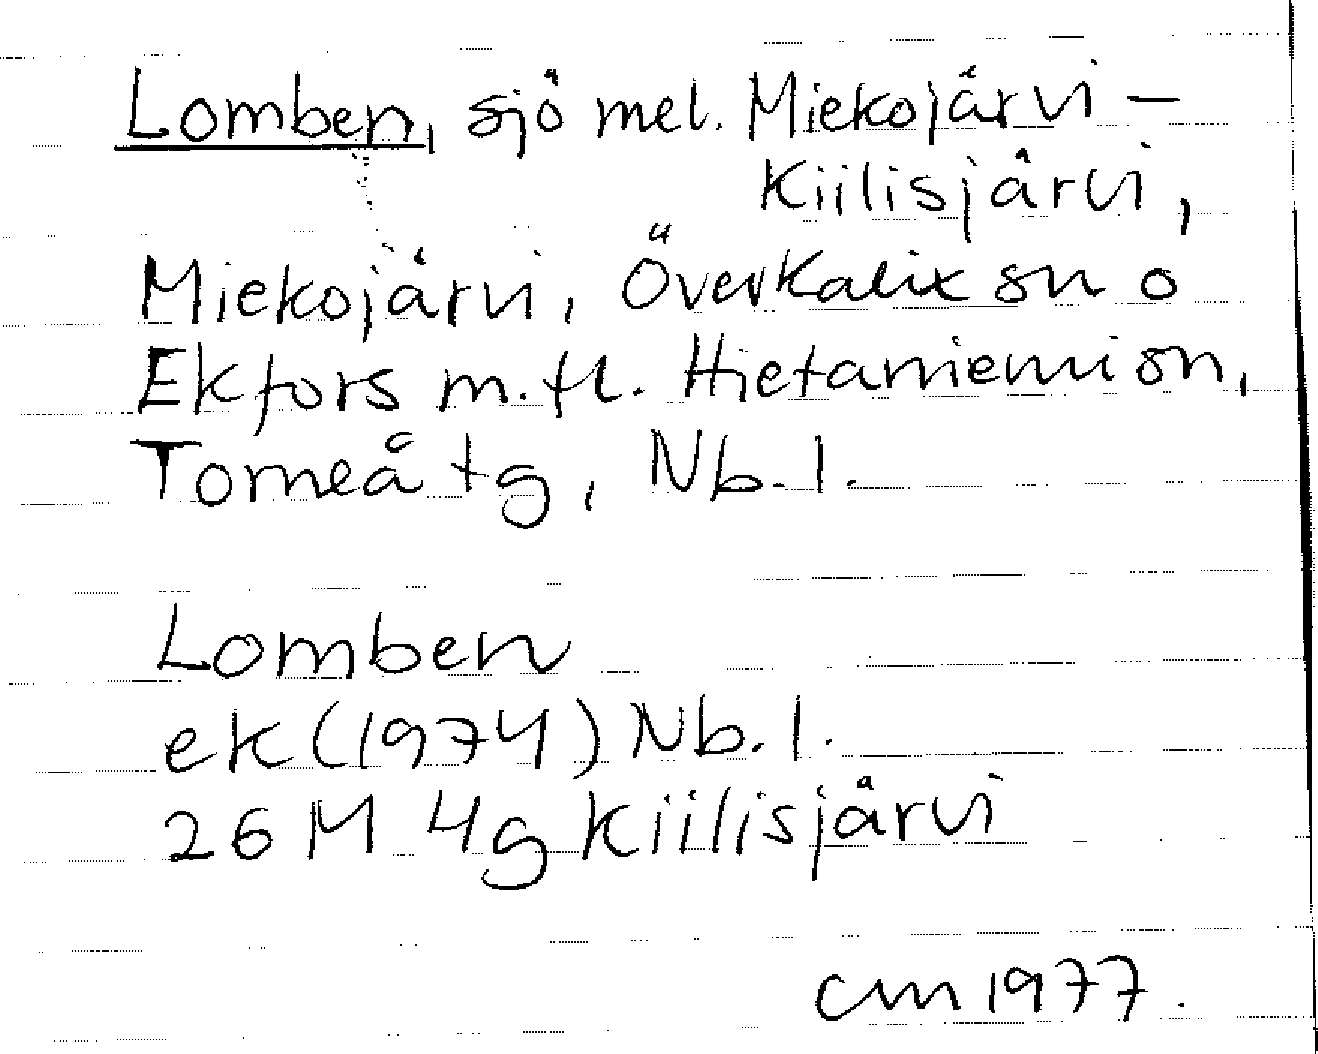 Lomben, sjö mel. Miekojärvi –
Kiilisjärvi,
Miekojärvi, Överkalix sn o
Ekfors m.fl. Hietaniemi sn,
Torneå tg, Nb. l.
Lomben
ek (1974) Nb. l.
26 M 4g Kiilisjärvi
cm 1977.